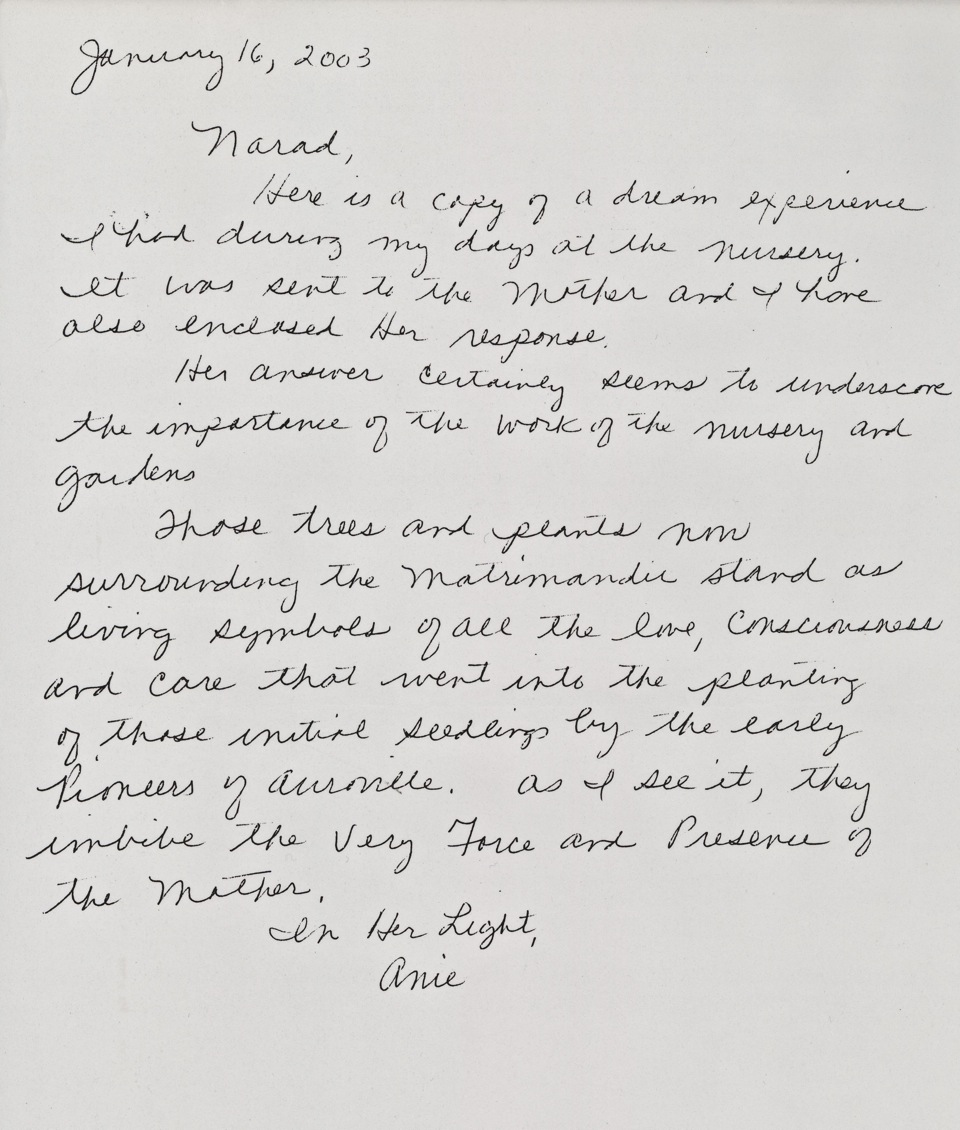 January 16, 2003
Narad,
Here is a copy of a dream experience
I had during my days at the nursery.
It was sent to the Mother and I have
also enclosed Her response.
Her answer certainly seems to underscore
the importance of the work of the nursery and
gardens
Those trees and plants now
surrounding the Matrimandir stand as
living symbols of all the love, Consciousness
and care that went into the planting
of those initial seedlings by the early
Pioneers of Auroville. As I see it, they
imbibe the Very Force and Presence of
the Mother.
In Her Light,
Anie